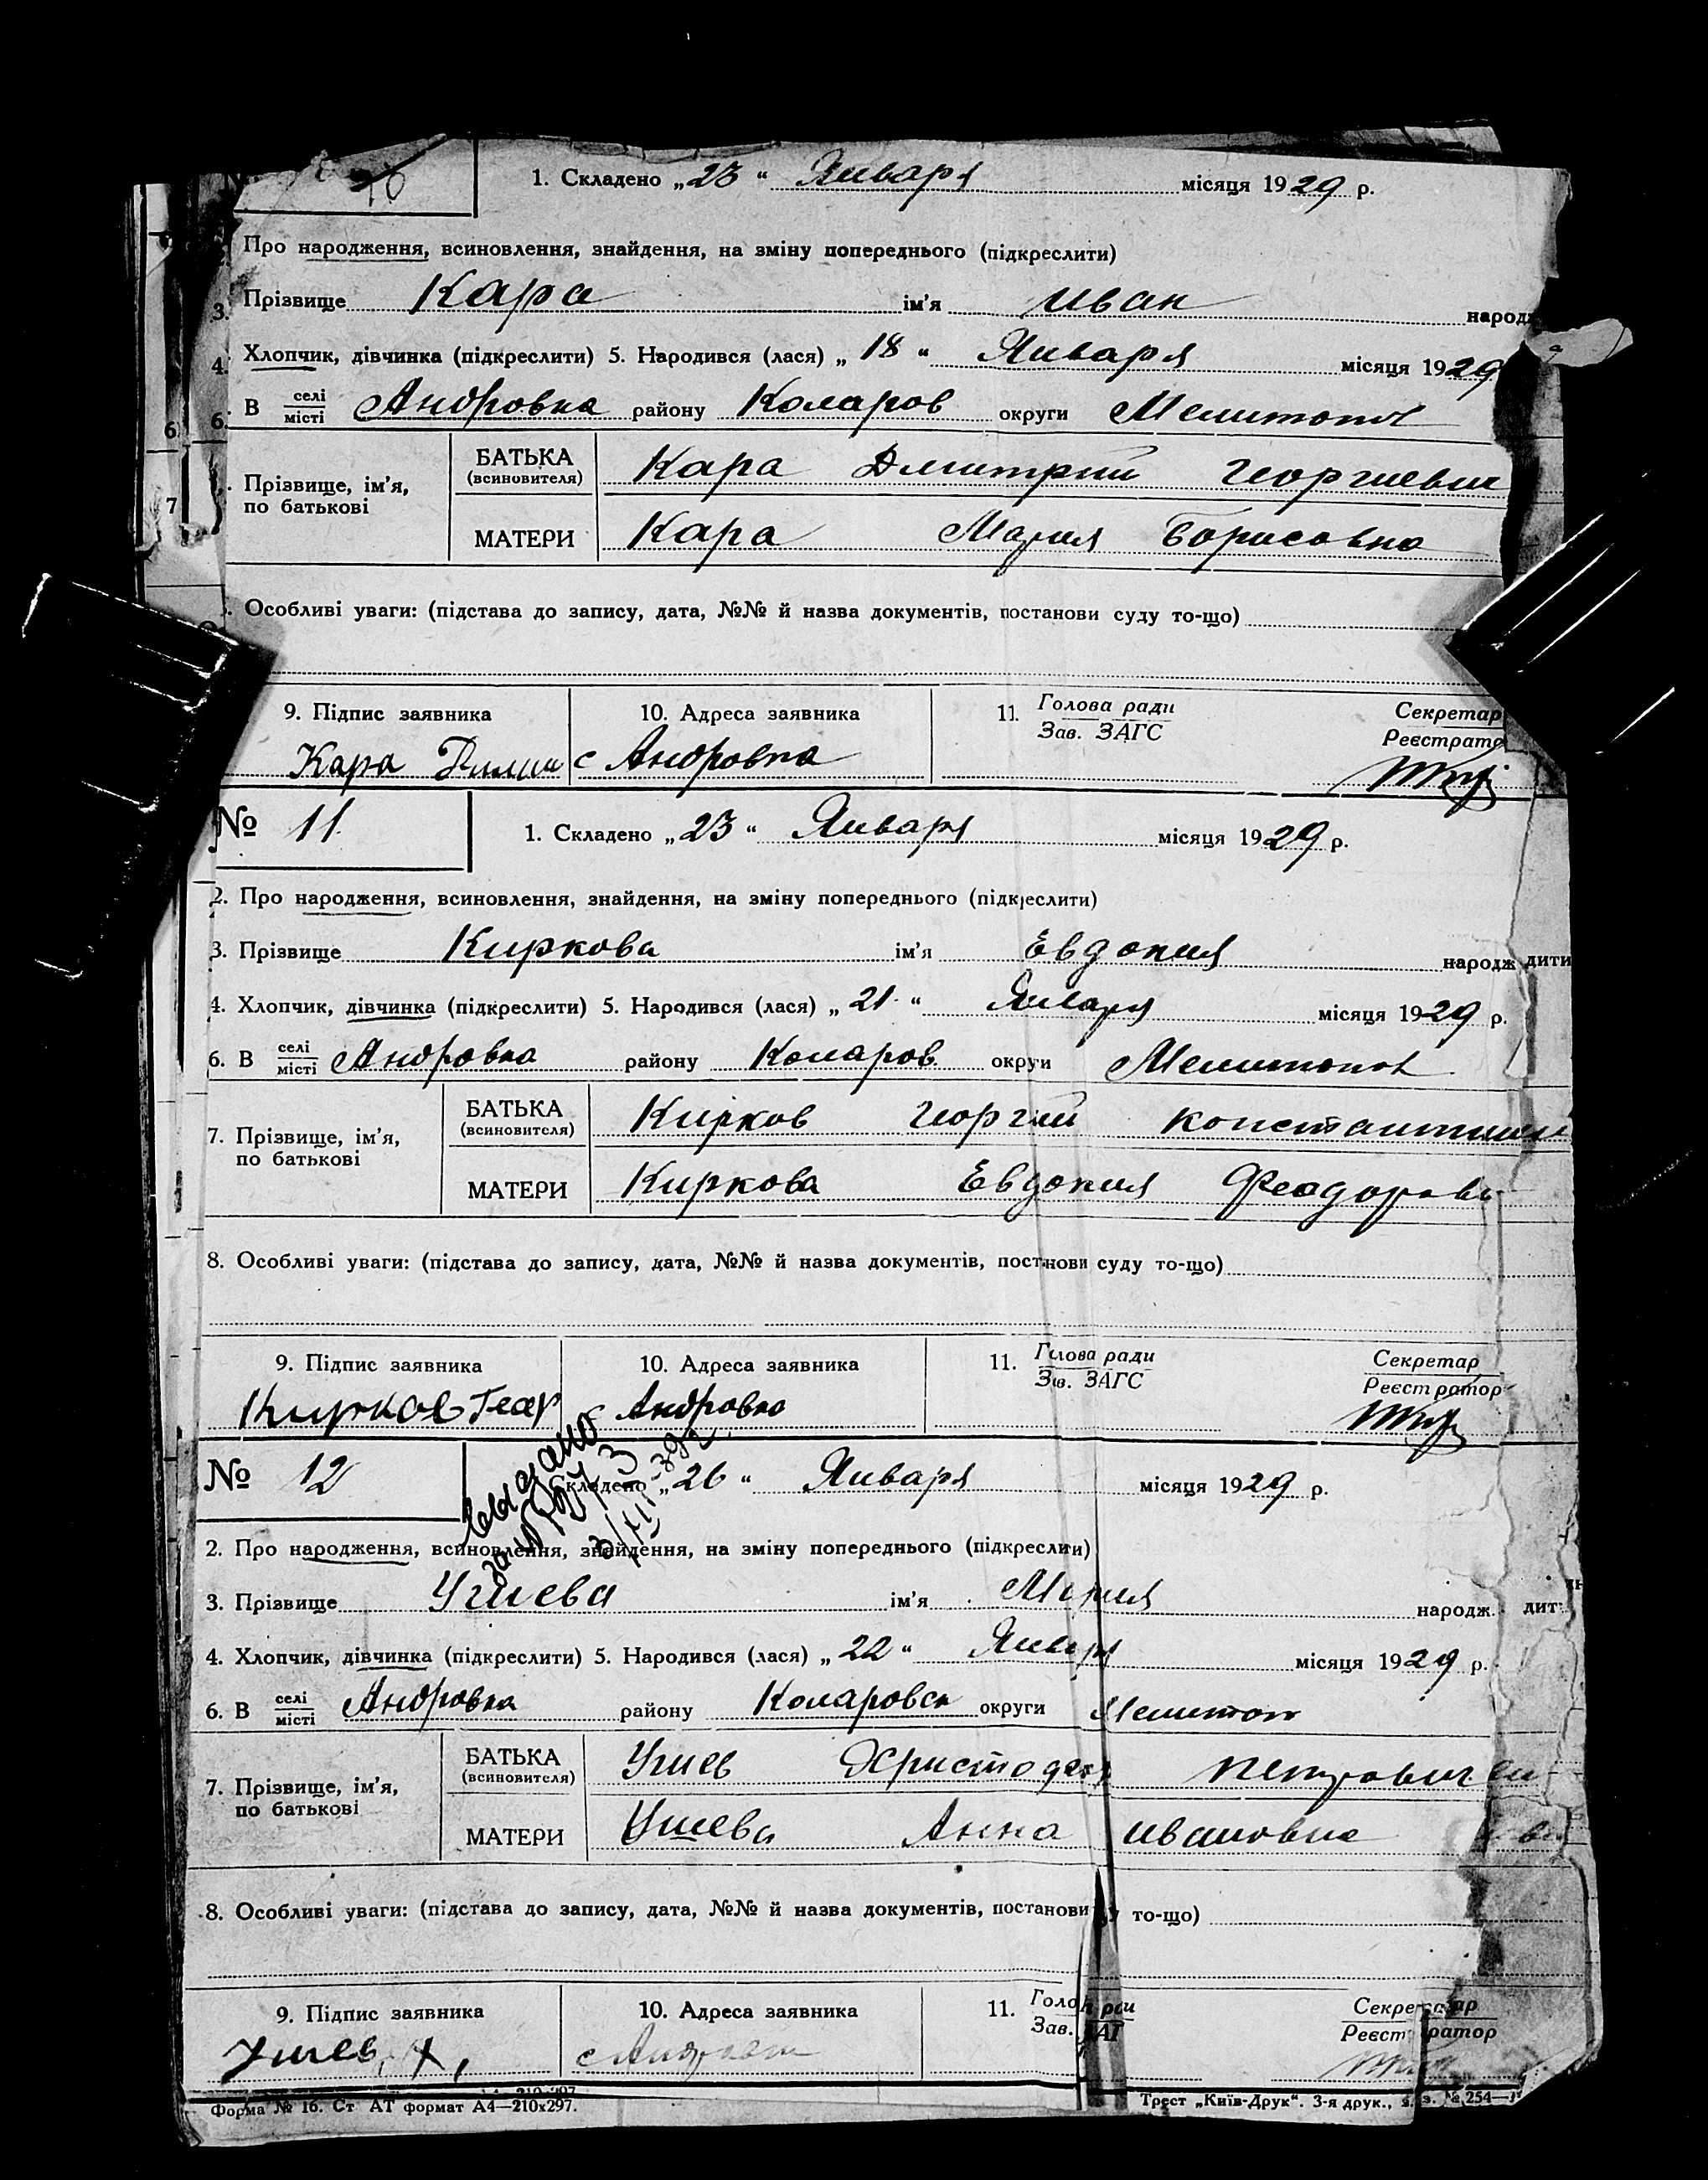 10
1. Складено „23“ Января місяця 1929 р.
Про народження, всиновлення, знайдення, на зміну попереднього (підкреслити)
3. Прізвище Кара ім'я Иван народж
4. Хлопчик, дівчинка (підкреслити) 5. Народився (лася) „18“ Января місяця 1929
6. В селі/місті Андровка району Коларов округи Мелитопол
БАТЬКА (всиновителя) Кара Дмитрий Георгиевич
Прізвище, ім'я, по батькові
МАТЕРИ Кара Мария Борисовна
Особливі уваги: (підстава до запису, дата, №№ й назва документів, постанови суду то-що)
9. Підпис заявника 10. Адреса заявника 11. Голова ради Секретар
Зав. ЗАГС Реєстрато
Кара с Андровка
№ 11 1. Складено „23“ Января місяця 1929 р.
2. Про народження, всиновлення, знайдення, на зміну попереднього (підкреслити)
3. Прізвище Киркова ім'я Евдокия народж дити
4. Хлопчик, дівчинка (підкреслити) 5. Народився (лася) „21“ Января місяця 1929 р.
6. В селі/місті Андровка району Коларов. округи Мелитопол
БАТЬКА (всиновителя) Кирков Георгий Константинов
7. Прізвище, ім'я, по батькові
МАТЕРИ Киркова Евдокия Феодоровн
8. Особливі уваги: (підстава до запису, дата, №№ й назва документів, постанови суду то-що)
9. Підпис заявника 10. Адреса заявника 11. Голова ради Секретар
Зав. ЗАГС Реєстратор
Кирков Геор с Андровка
№ 12 Складено „26“ Января місяця 1929 р.
выдано
2. Про народження, всиновлення, знайдення, на зміну попереднього (підкреслити)
3. Прізвище Угиева ім'я Мария народж. дит
4. Хлопчик, дівчинка (підкреслити) 5. Народився (лася) „22“ Января місяця 1929 р.
6. В селі/місті Андровка району Коларовск округи Мелитоп
БАТЬКА (всиновителя) Угиев Христодор Петрович
7. Прізвище, ім'я, по батькові
МАТЕРИ Анна Ивановна
8. Особливі уваги: (підстава до запису, дата, №№ й назва документів, постанови то-що)
9. Підпис заявника 10. Адреса заявника 11. Голо ради Секретар
Зав. ЗАГ Реєстратор
с Андровк
Форма № 16. Ст АТ формат А4—210х297. Трест „Київ-Друк“. 3-я друк., з. № 254—